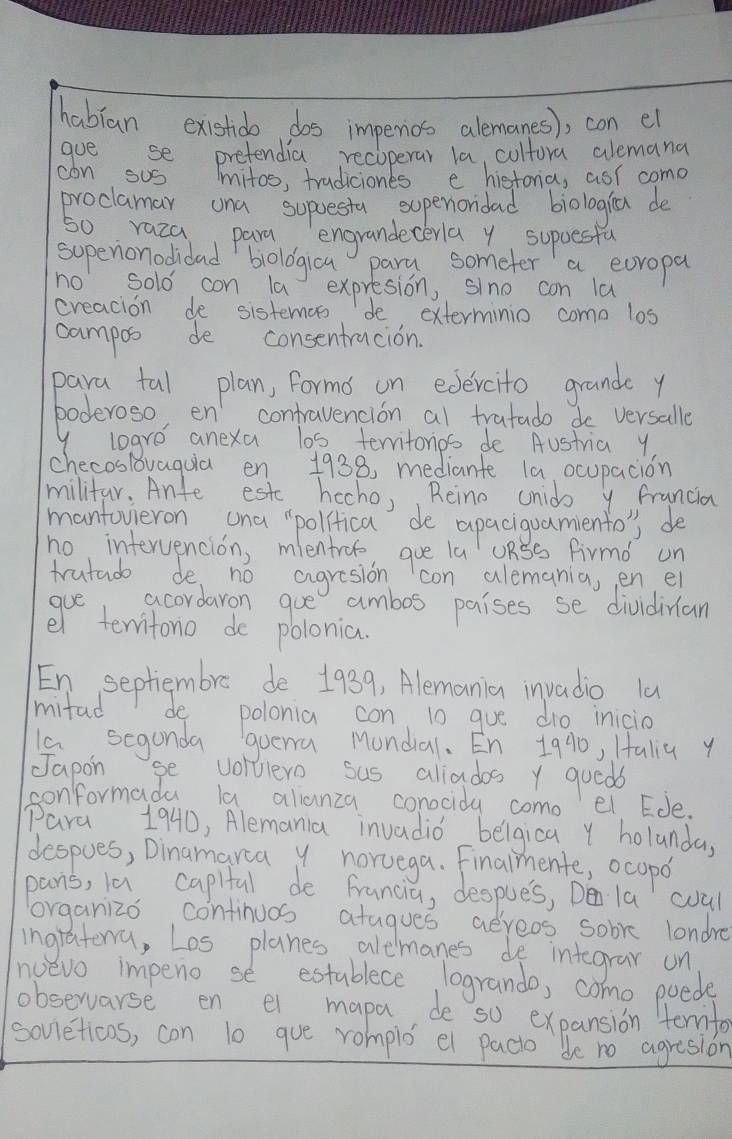 habían existido dos imperios alemanes), con el
que se pretendía recuperar la cultura alemana
con sus mitos, tradiciones e historia, así como
proclamar una supuesta superioridad biologica de
su raza para engrandecerla y supuesta
superiorodidad biológica para someter a europa
no soló con la expresión, sino con la
creación de sistemas de exterminio como los
campos de consentración.
para tal plan, formó un eJército grande y
poderoso en contravención al tratado de versalle
y logró anexa los territorios de Austria y
checoslovaquia en 1938, mediante la ocupación
militar. Ante este hecho, Reino unido y francia
mantuvieron una "política de apaciguamiento", de
no intervención, mientras que la URSS firmó un
tratado de no agresión con alemania, en el
que acordaron que ambos países se dividirían
el territorio de polonia.
En septiembre de 1939, Alemania invadio la
mitad de polonia con lo que dio inicio
la segunda guerra Mundial. En 1940, Italia y
Japón se volviero sus aliados y quedó
conformada la alianza conocida como el EJe.
Para 1940, Alemania invadió bélgica y holanda,
despues, Dinamarca y noruega. Finalmente, ocupó
paris, la capital de francia, después, De la cual
organizó continuos ataques aéreos sobre londre
inglaterra, Los planes alemanes de integrar un
nuevo imperio se establece logrando, como puede
observarse en el mapa de su expansión territo
soviéticos, con lo que rompió el pacto de no agresión